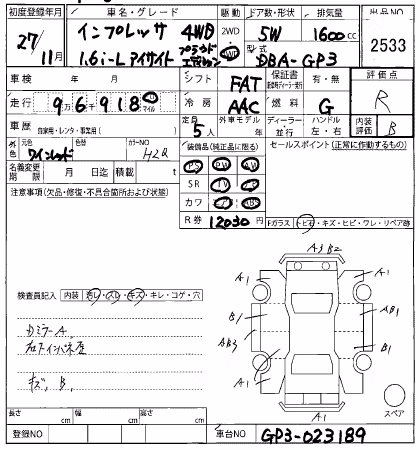 初度登録年月 車名・グレード 駆動 ドア数・形状 排気量 出品NO
27年 11月 インプレッサ 4WD 2WD 5W 1600cc 2533
1.6i-L アイサイト プラウドエディション 4WD 型式 DBA-GP3
車検 年 月 シフト FAT 保証書 有・無 評価点
走行 9万6千918 km マイル 冷房 AAC 燃料 G R
車歴 自家用・レンタ・事業用( ) 定員 5人 外車モデル 年 ディーラー・並行 ハンドル 左・右 内装評価 B
外色 元色 ワインレッド 色替 カラーNO H2Q 装備品(純正品に限る) セールスポイント(正常に作動するもの)
名義変更期限 月 日迄 積載 t PS PW AW
注意事項(欠品・修復・不具合箇所および状態) SR TV
カワ AB
R券 12030円
Fガラス トビ石・キズ・ヒビ・ワレ・リペア跡
A3 B2
A1 A1
検査員記入 内装 汚レ・スレ・キズ・キレ・コゲ・穴
B1 AB1
AB3 B1
キズ、B、
A1 A1
A1
スペア
長さ cm 幅 cm 高さ cm
登録NO 車台NO GP3-023189